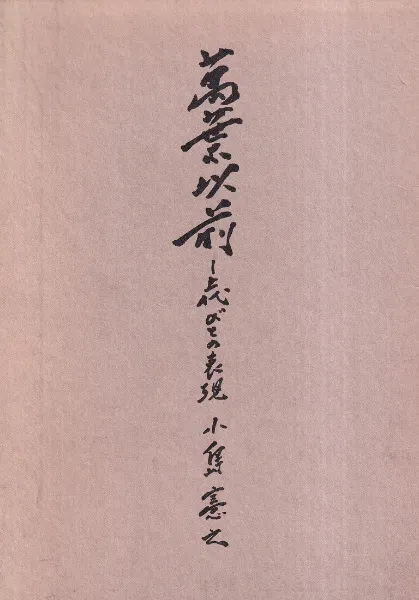 萬葉以前
—上代びとの表現 小島憲之